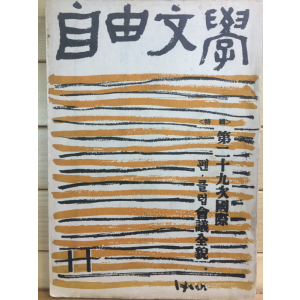 自由文學
第二十九次國際
펜·클럽會議全貌
11